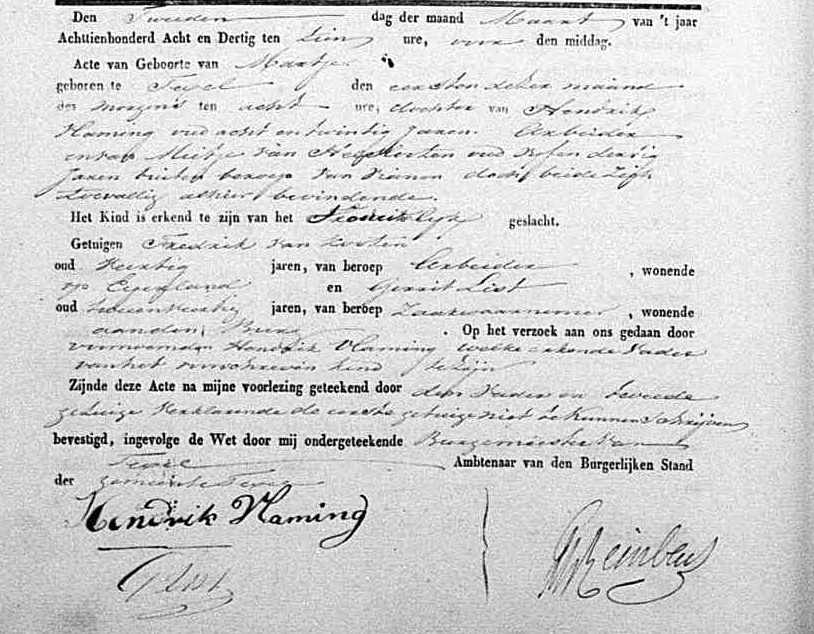 Den Tweeden dag der maand Maart van 't jaar
Achttienhonderd Acht en Dertig ten tien ure, voor den middag.
Acte van Geboorte van Maartje
geboren te Texel den eersten dezer maand
des morgens ten acht ure, dochter van Hendrik
Vlaming oud acht en twintig Jaren Arbeider
en van Mietje van
Jaren buiten beroep van doch beide zich
toevallig alhier bevindende.
Het Kind is erkend te zijn van het Vrouwelijk geslacht.
Getuigen Fredrik van
oud Veertig jaren, van beroep Arbeider, wonende
op Eijerland en Gerrit List
oud jaren, van beroep Zaakwaarnemer, wonende
aanden . Op het verzoek aan ons gedaan door
voornoemden Hendrik Vlaming welke erkende Vader
van het kind te zijn
Zijnde deze Acte na mijne voorlezing geteekend door den Vader en tweede
getuige verklarende de eerste getuige niet te kunnen Schrijven
bevestigd, ingevolge de Wet door mij ondergeteekende Burgemeester van
Texel Ambtenaar van den Burgerlijken Stand
der gemeente Texel
Hendrik Vlaming
G List
Reinbeus